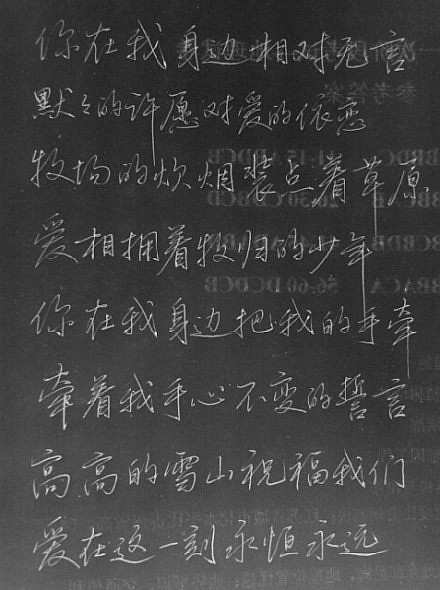 你在我身边相对无言
默々的许愿对爱的依恋
牧场的炊烟装点着草原
爱相拥着牧归的少年
你在我身边把我的手牵
牵着我手心不变的誓言
高高的雪山祝福我们
爱在这一刻永恒永远